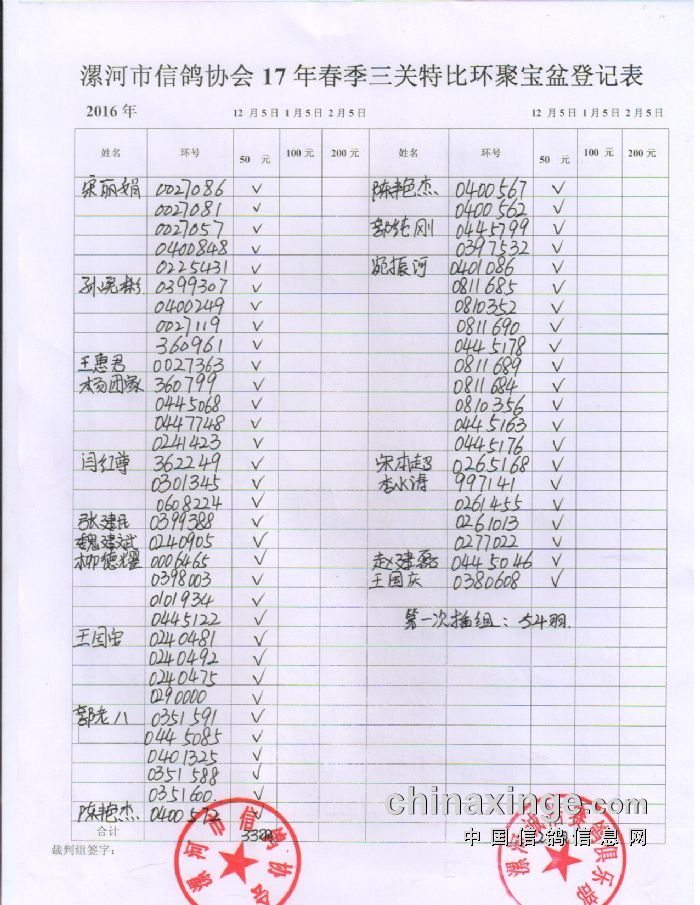 漯河市信鸽协会 17 年春季三关特比环聚宝盆登记表
2016 年 12 月 5 日 1 月 5 日 2 月 5 日 12 月 5 日 1 月 5 日 2 月 5 日
姓名 环号 50 元 100 元 200 元 姓名 环号 50 元 100 元 200 元
宋丽娟 0027086 ✓ 陈艳杰 0400567 ✓
0027081 ✓ 0400562 ✓
0027057 ✓ 郭纯刚 0445799 ✓
0400848 ✓ 0397532 ✓
0225431 ✓ 宛振河 0401086 ✓
孙晓彬 0399307 ✓ 0811685 ✓
0400249 ✓ 0810352 ✓
0027119 ✓ 0811690 ✓
360961 ✓ 0445178 ✓
王惠君 0027363 ✓ 0811689 ✓
杨团家 360799 ✓ 0811684 ✓
0445068 ✓ 0810356 ✓
0447748 ✓ 0445163 ✓
0241423 ✓ 0445176 ✓
闫红尊 362249 ✓ 宋本超 0265168 ✓
0301345 ✓ 李水涛 997141 ✓
0608224 ✓ 0261455 ✓
张建民 0399388 ✓ 0261013 ✓
魏建斌 0240905 ✓ 0277022 ✓
柳德耀 0006465 ✓ 赵建磊 0445046 ✓
0398003 ✓ 王国庆 0380608 ✓
0101934 ✓
0445122 ✓ 第一次插组：54羽.
王国宝 0240481 ✓
0240492 ✓
0240475 ✓
0290000 ✓
郭老八 0351591 ✓
0445085 ✓
0401325 ✓
0351588 ✓
0351600 ✓
陈艳杰 0400572 ✓
合计
裁判组签字：
漯河市信鸽协会
漯河赛鸽俱乐部
chinaxinge.com
中国信鸽信息网